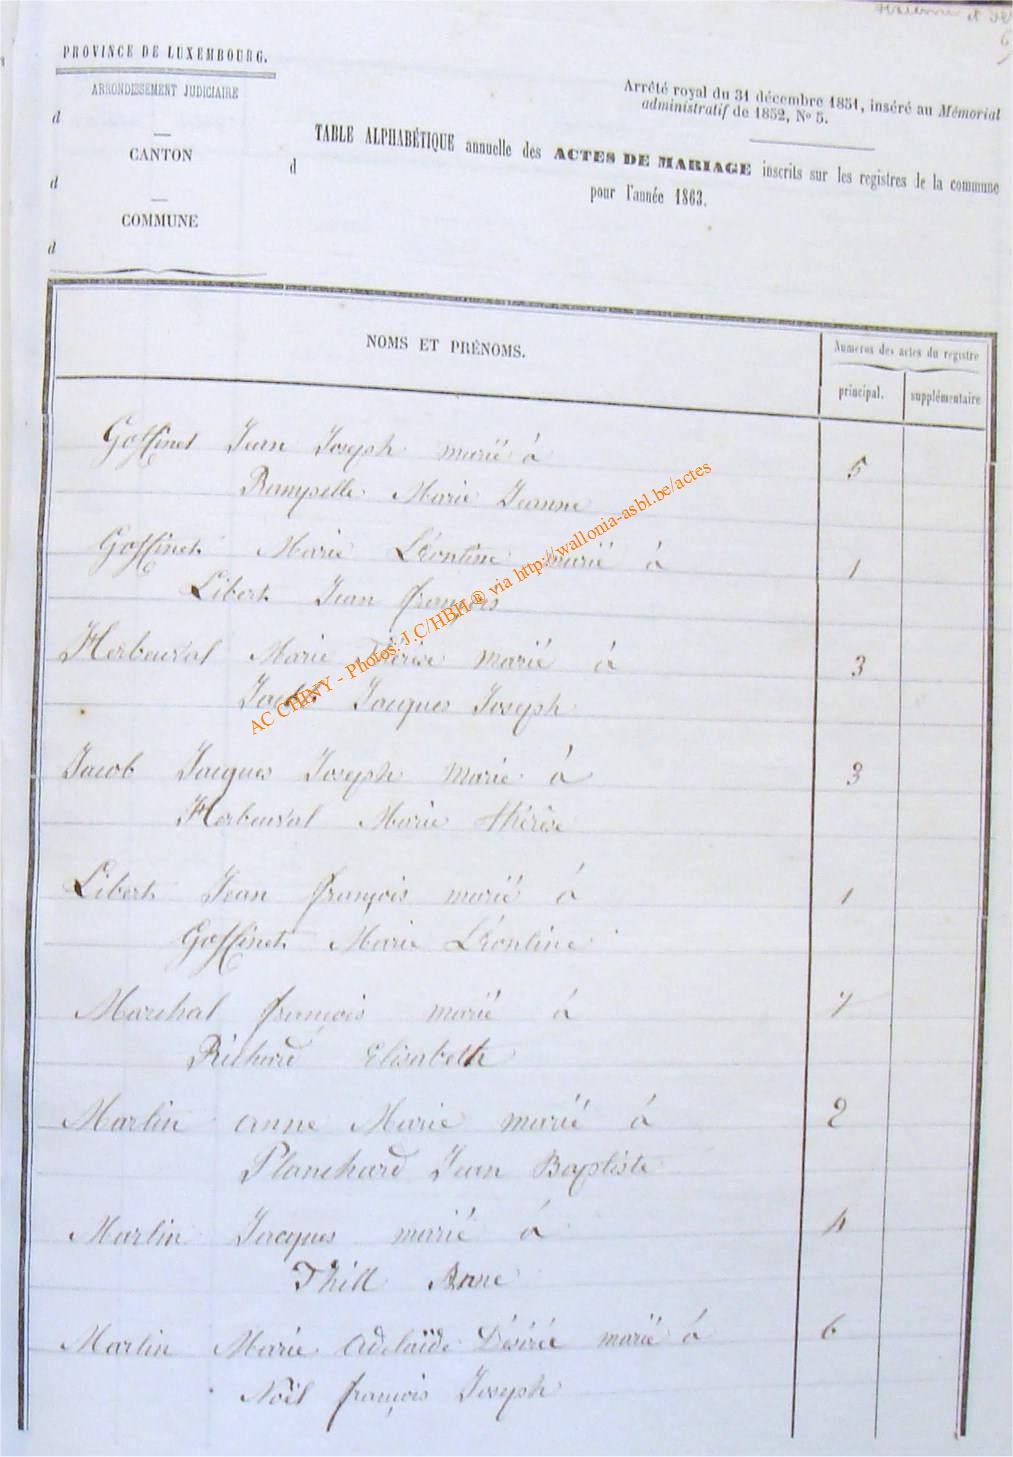 PROVINCE DE LUXEMBOURG.
ARRONDISSEMENT JUDICIAIRE
d
CANTON
d
COMMUNE
d
Arrêté royal du 31 décembre 1851, inséré au Mémorial
administratif de 1852, No 5.
TABLE ALPHABÉTIQUE annuelle des ACTES DE MARIAGE inscrits sur les registres de la commune
d
pour l'année 1863.
NOMS ET PRÉNOMS.
Numéros des actes du registre
principal.
supplémentaire
Goffinet Jean Joseph marié à
5
Marie Jeanne
Goffinet Marie Léontine marié à
1
Libert Jean françois
Herbeuval Marie Thérèse marié à
3
Jacob Jacques Joseph
Jacob Jacques Joseph Marié à
3
Herbeuval Marie thérèse
Libert Jean françois marié à
1
Goffinet Marie Léontine
Marchal françois marié à
7
Richard Elisabeth
Martin anne Marie marié à
2
Planchard Jean Baptiste
Martin Jacques marié à
4
Thill Anne
Martin Marie adelaïde Désirée marié à
6
Noël françois Joseph
AC CHINY - Photos: J.C/HBH ® via http://wallonia-asbl.be/actes